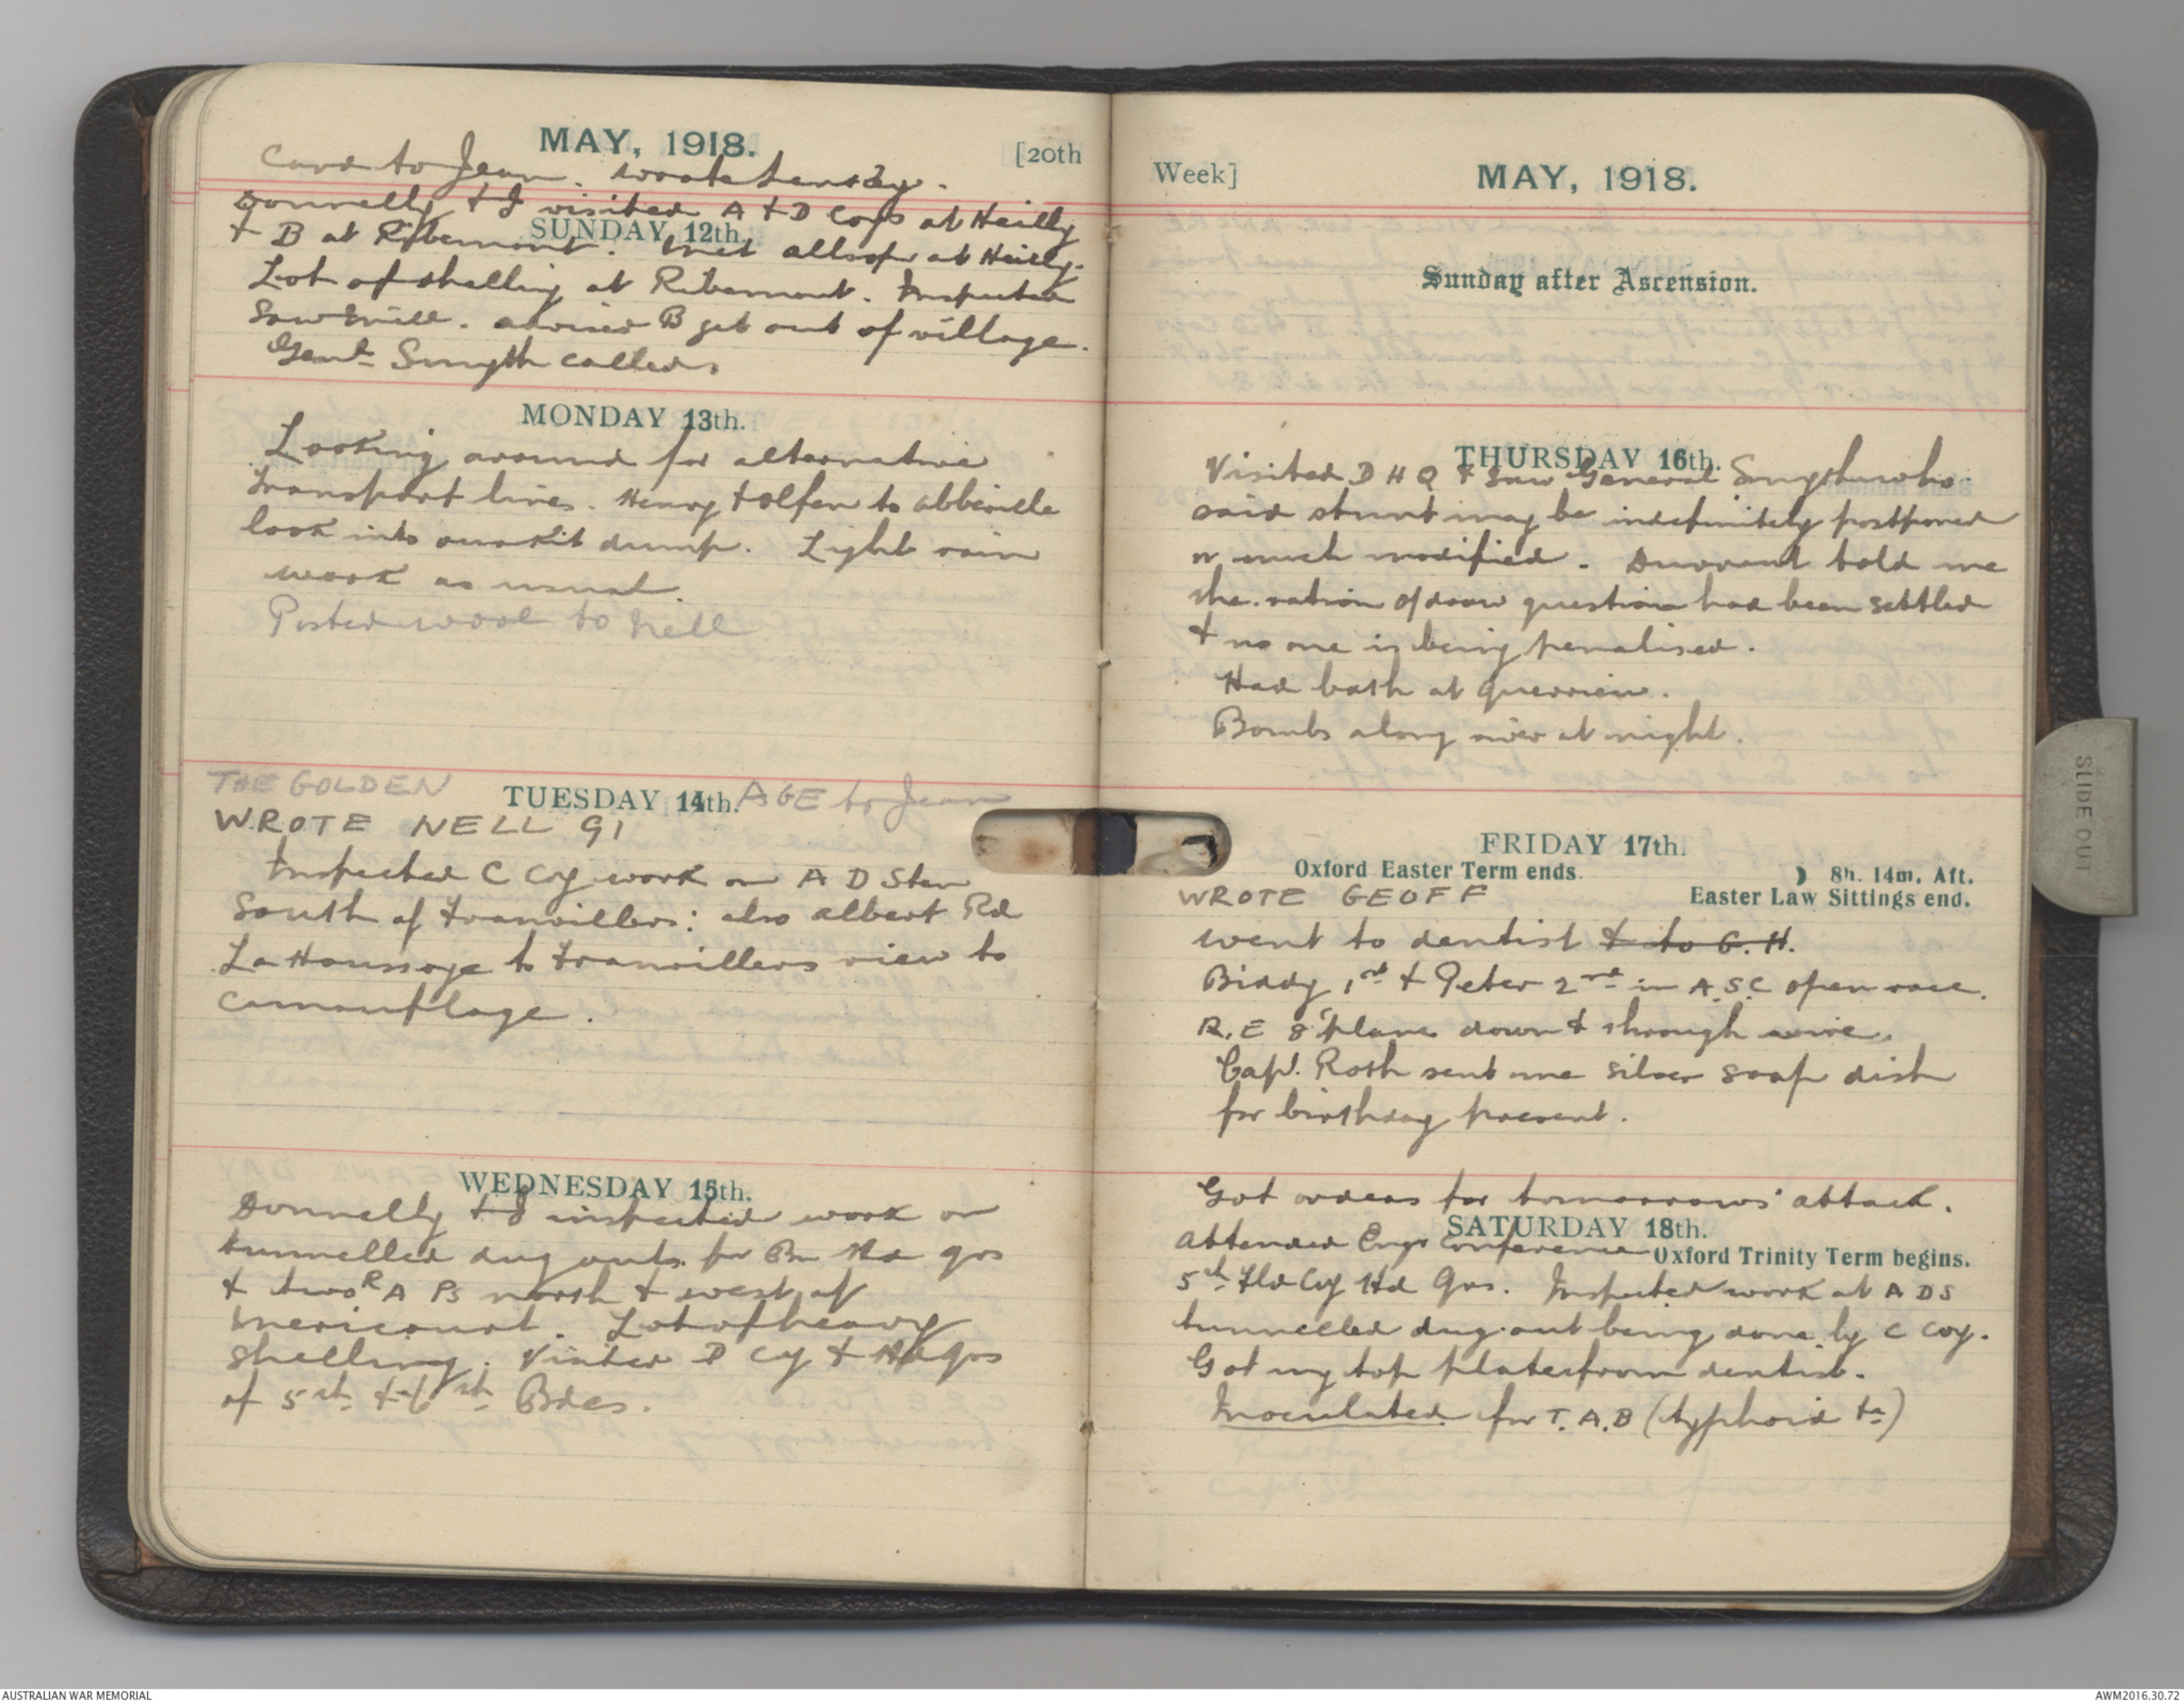 MAY, 1918.
[20th
Card to Jean. Wrote
Donnelly & I visited A & D Coys at Heilly
SUNDAY 12th.
& B at Ribemont. Met Allsop at Heilly.
Lot of shelling at Ribemont. Inspected
Sawmill. advised B get out of village.
Genl Smyth called.
MONDAY 13th.
Looking around for alternative
transport lines. Henry & Olsen to Abbeville
look into ourkit dump. Light rain
work as usual.
Posted wool to Nell
THE GOLDEN AGE to Jean
TUESDAY 14th.
WROTE NELL 91
Inspected C Coy work on A D Stn
South of Franvillers: also Albert Rd
La Houssoye to Franvillers view to
camouflage.
WEDNESDAY 15th.
Donnelly & I inspected work on
tunnelled dug outs for Bn Hd qrs
& two R A Ps north & west of
Mericourt. Lot of heavy
shelling. Visited D Cy & Hdqrs
of 5th & 6th Bdes.
Week]
MAY, 1918.
Sunday after Ascension.
THURSDAY 16th.
Visited D H Q & saw General Smyth who
said stunt may be indefinitely postponed
or much modified. Durrant told me
the ration of straw question had been settled
& no one is being penalised.
Had bath at Querrieu.
Bombs along river at night.
FRIDAY 17th.
Oxford Easter Term ends.
☽ 8h. 14m. Aft.
Easter Law Sittings end.
WROTE GEOFF
went to dentist & to G. H.
Biddy 1st & Peter 2nd in A.S.C open race.
R.E 8 'plane down & through wire.
Capt. Roth sent me silver soap dish
for birthday present.
Got orders for tomorrows' attack.
SATURDAY 18th.
Attended Engr Conference
Oxford Trinity Term begins.
5th Fld Coy Hd Qrs. Inspected work at A D S
tunnelled dug-out being done by C Coy.
Got my top plate from dentist.
Inoculated for T.A.B (typhoid &c)
SLIDE OUT
AUSTRALIAN WAR MEMORIAL
AWM2016.30.72